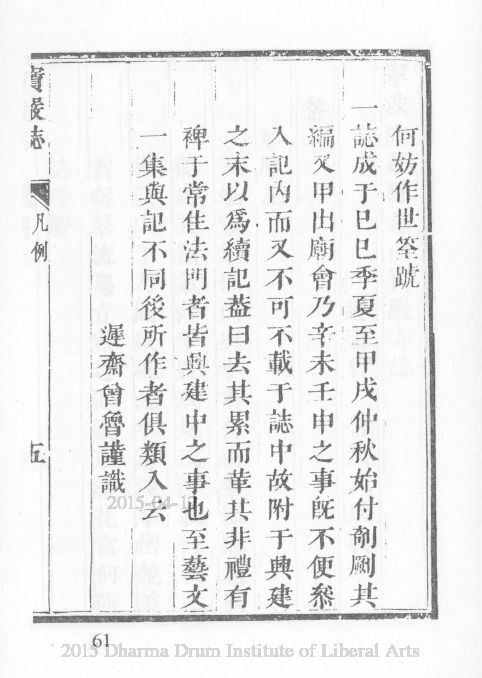 何妨作世筌蹏
一誌成于巳巳季夏至甲戌仲秋始付剞劂其
編又甲出廟會乃辛未壬申之事既不便叅
入記內而又不可不載于誌中故附于興建
之末以爲續記葢曰去其累而葦其非禮有
裨于常住法門者皆興建中之事也至藝文
一集與記不同後所作者俱類入云
遲齋曾僐謹識
寶嚴誌
凡例
五
2015-04-1
61
2015 Dharma Drum Institute of Liberal Arts